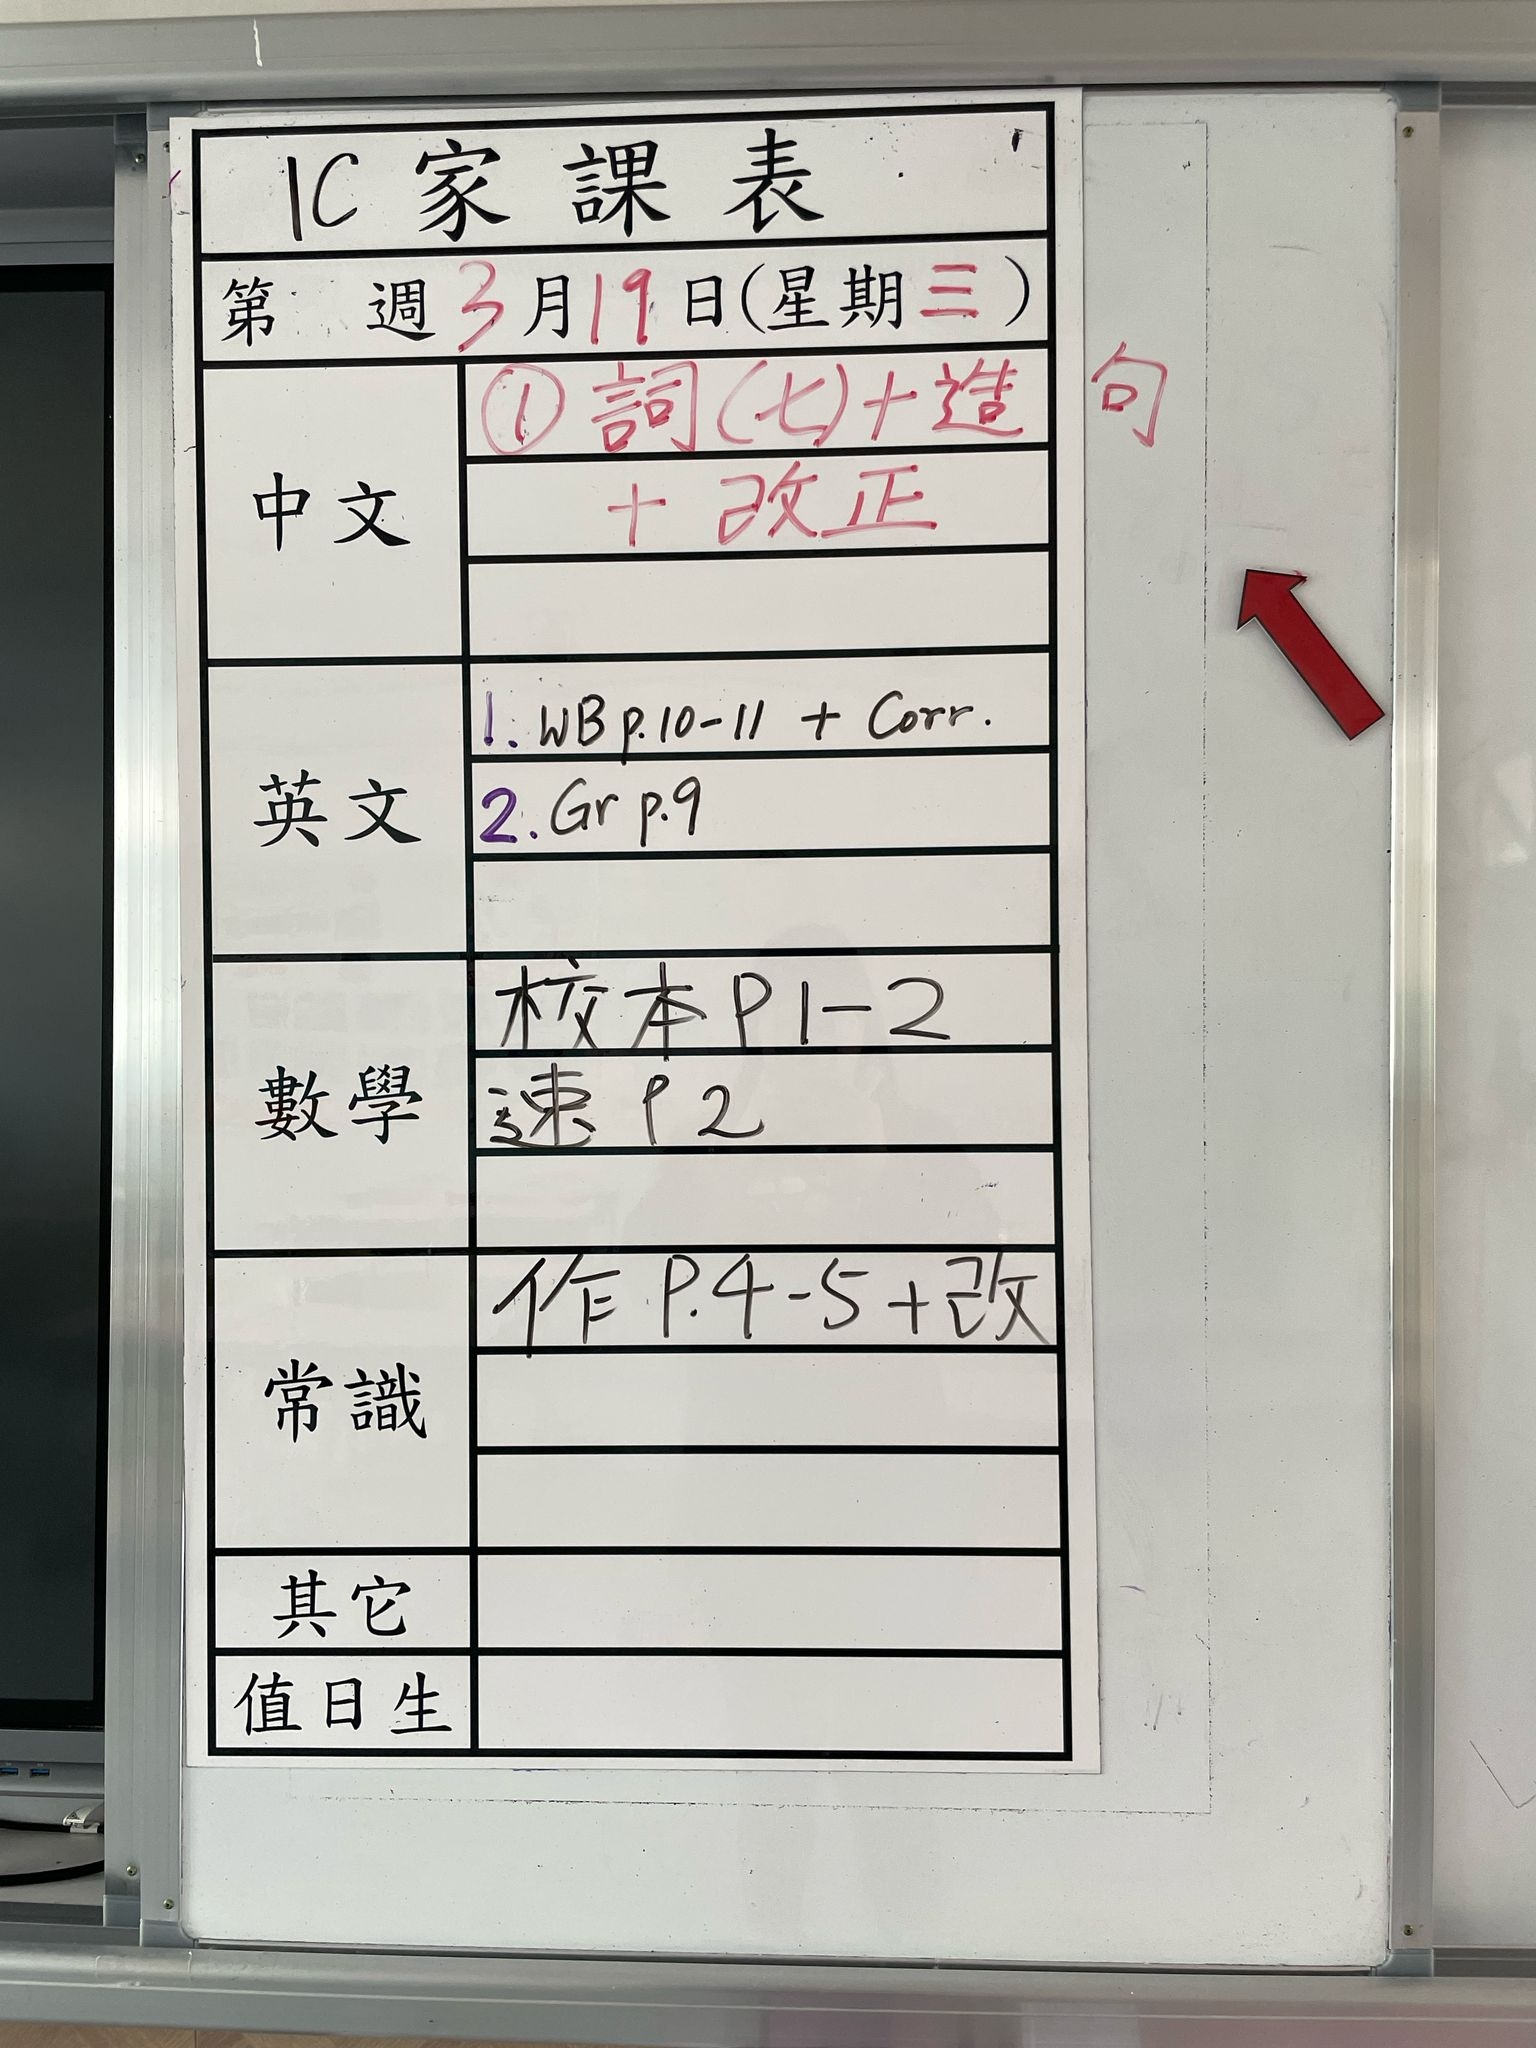 1C 家課表
第 週 3月19日(星期三)
中文
① 詞(七)+造句
+ 改正
英文
1. WB p.10-11 + Corr.
2. Gr p.9
數學
校本 P1-2
速 P2
常識
作 P.4-5+改
其它
值日生